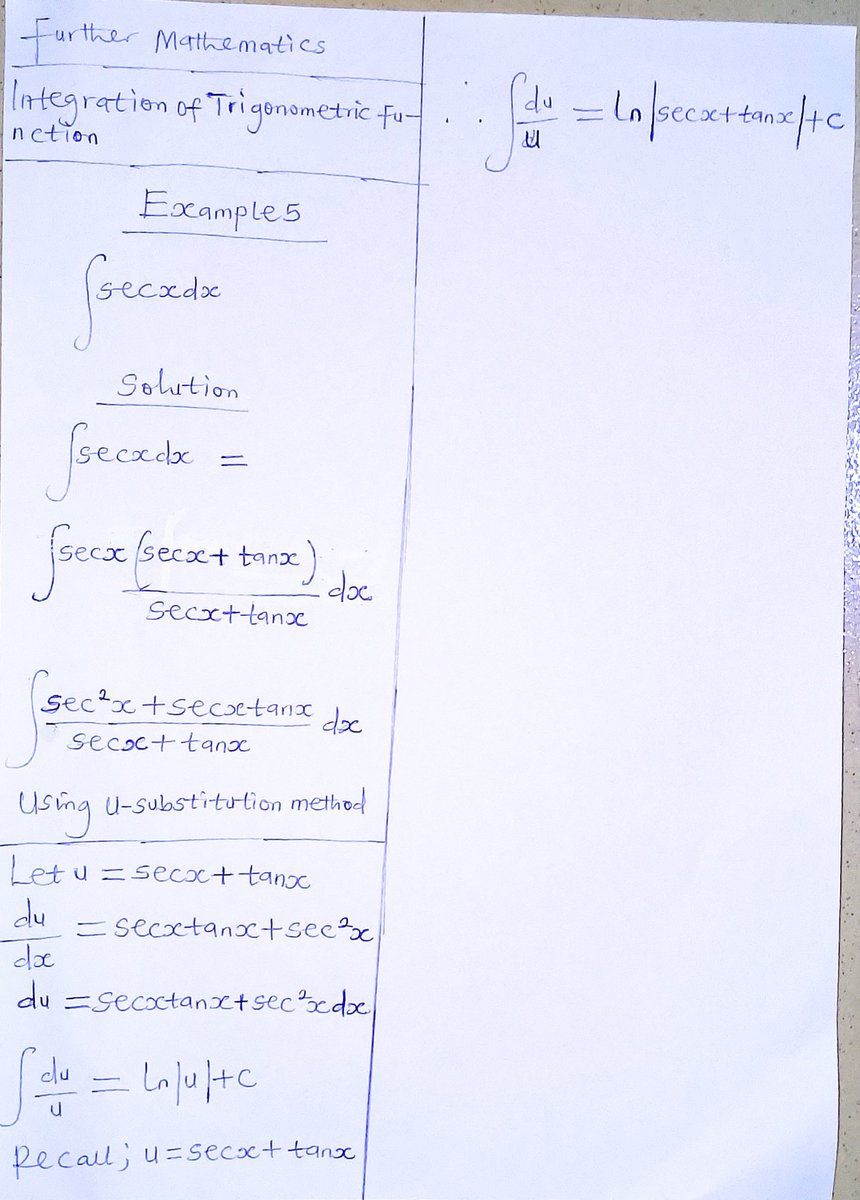 Further Mathematics
Integration of Trigonometric Fu-
nction
Example 5
∫secxdx
Solution
∫secxdx =
∫secx(secx + tanx)/secx+tanx dx
∫sec²x + secxtanx/secx + tanx dx
Using U-substitution method
Let u = secx + tanx
du/dx = secxtanx + sec²x
du = secxtanx + sec²xdx
∫du/u = ln|u| + c
Recall; u = secx + tanx
∴ ∫du/u = ln|secx + tanx| + c